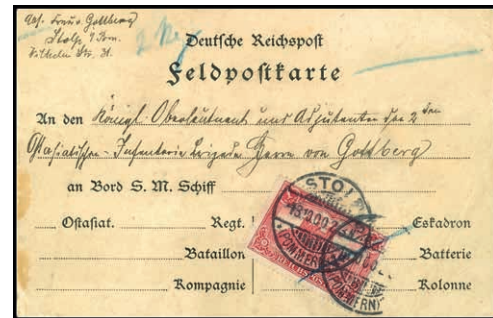 Abs. Frau v. Gottberg
Stolp i. Pom.
Wilhelm Str. 31.
Deutsche Reichspost
Feldpostkarte
An den Königl. Oberleutnant und Adjutanten der 2ten
Ostasiatischen-Infanterie Brigade Herrn von Gottberg
an Bord S. M. Schiff
Ostasiat. Regt. Eskadron
Bataillon Batterie
Kompagnie Kolonne
STOLP
(POMMERN)